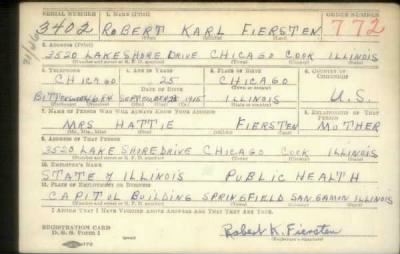 SERIAL NUMBER 1. NAME (Print) ORDER NUMBER
3402 ROBERT KARL FIERSTEN 772
2. ADDRESS (Print)
3520 LAKE SHORE DRIVE CHICAGO COOK ILLINOIS
3. TELEPHONE 4. AGE IN YEARS 5. PLACE OF BIRTH 6. COUNTRY OF CITIZENSHIP
CHICAGO 25 CHICAGO
DATE OF BIRTH
SEPTEMBER 1915 ILLINOIS U.S.
7. NAME OF PERSON WHO WILL ALWAYS KNOW YOUR ADDRESS 8. RELATIONSHIP OF THAT PERSON
MRS HATTIE FIERSTEN MOTHER
(Mr., Mrs., Miss) (First) (Middle) (Last)
9. ADDRESS OF THAT PERSON
3520 LAKE SHORE DRIVE CHICAGO COOK ILLINOIS
10. EMPLOYER'S NAME
STATE of ILLINOIS PUBLIC HEALTH
11. PLACE OF EMPLOYMENT OR BUSINESS
CAPITOL BUILDING SPRINGFIELD SANGAMON ILLINOIS
I AFFIRM THAT I HAVE VERIFIED ABOVE ANSWERS AND THAT THEY ARE TRUE.
REGISTRATION CARD
D. S. S. Form 1
Robert K. Fiersten
(Registrant's signature)